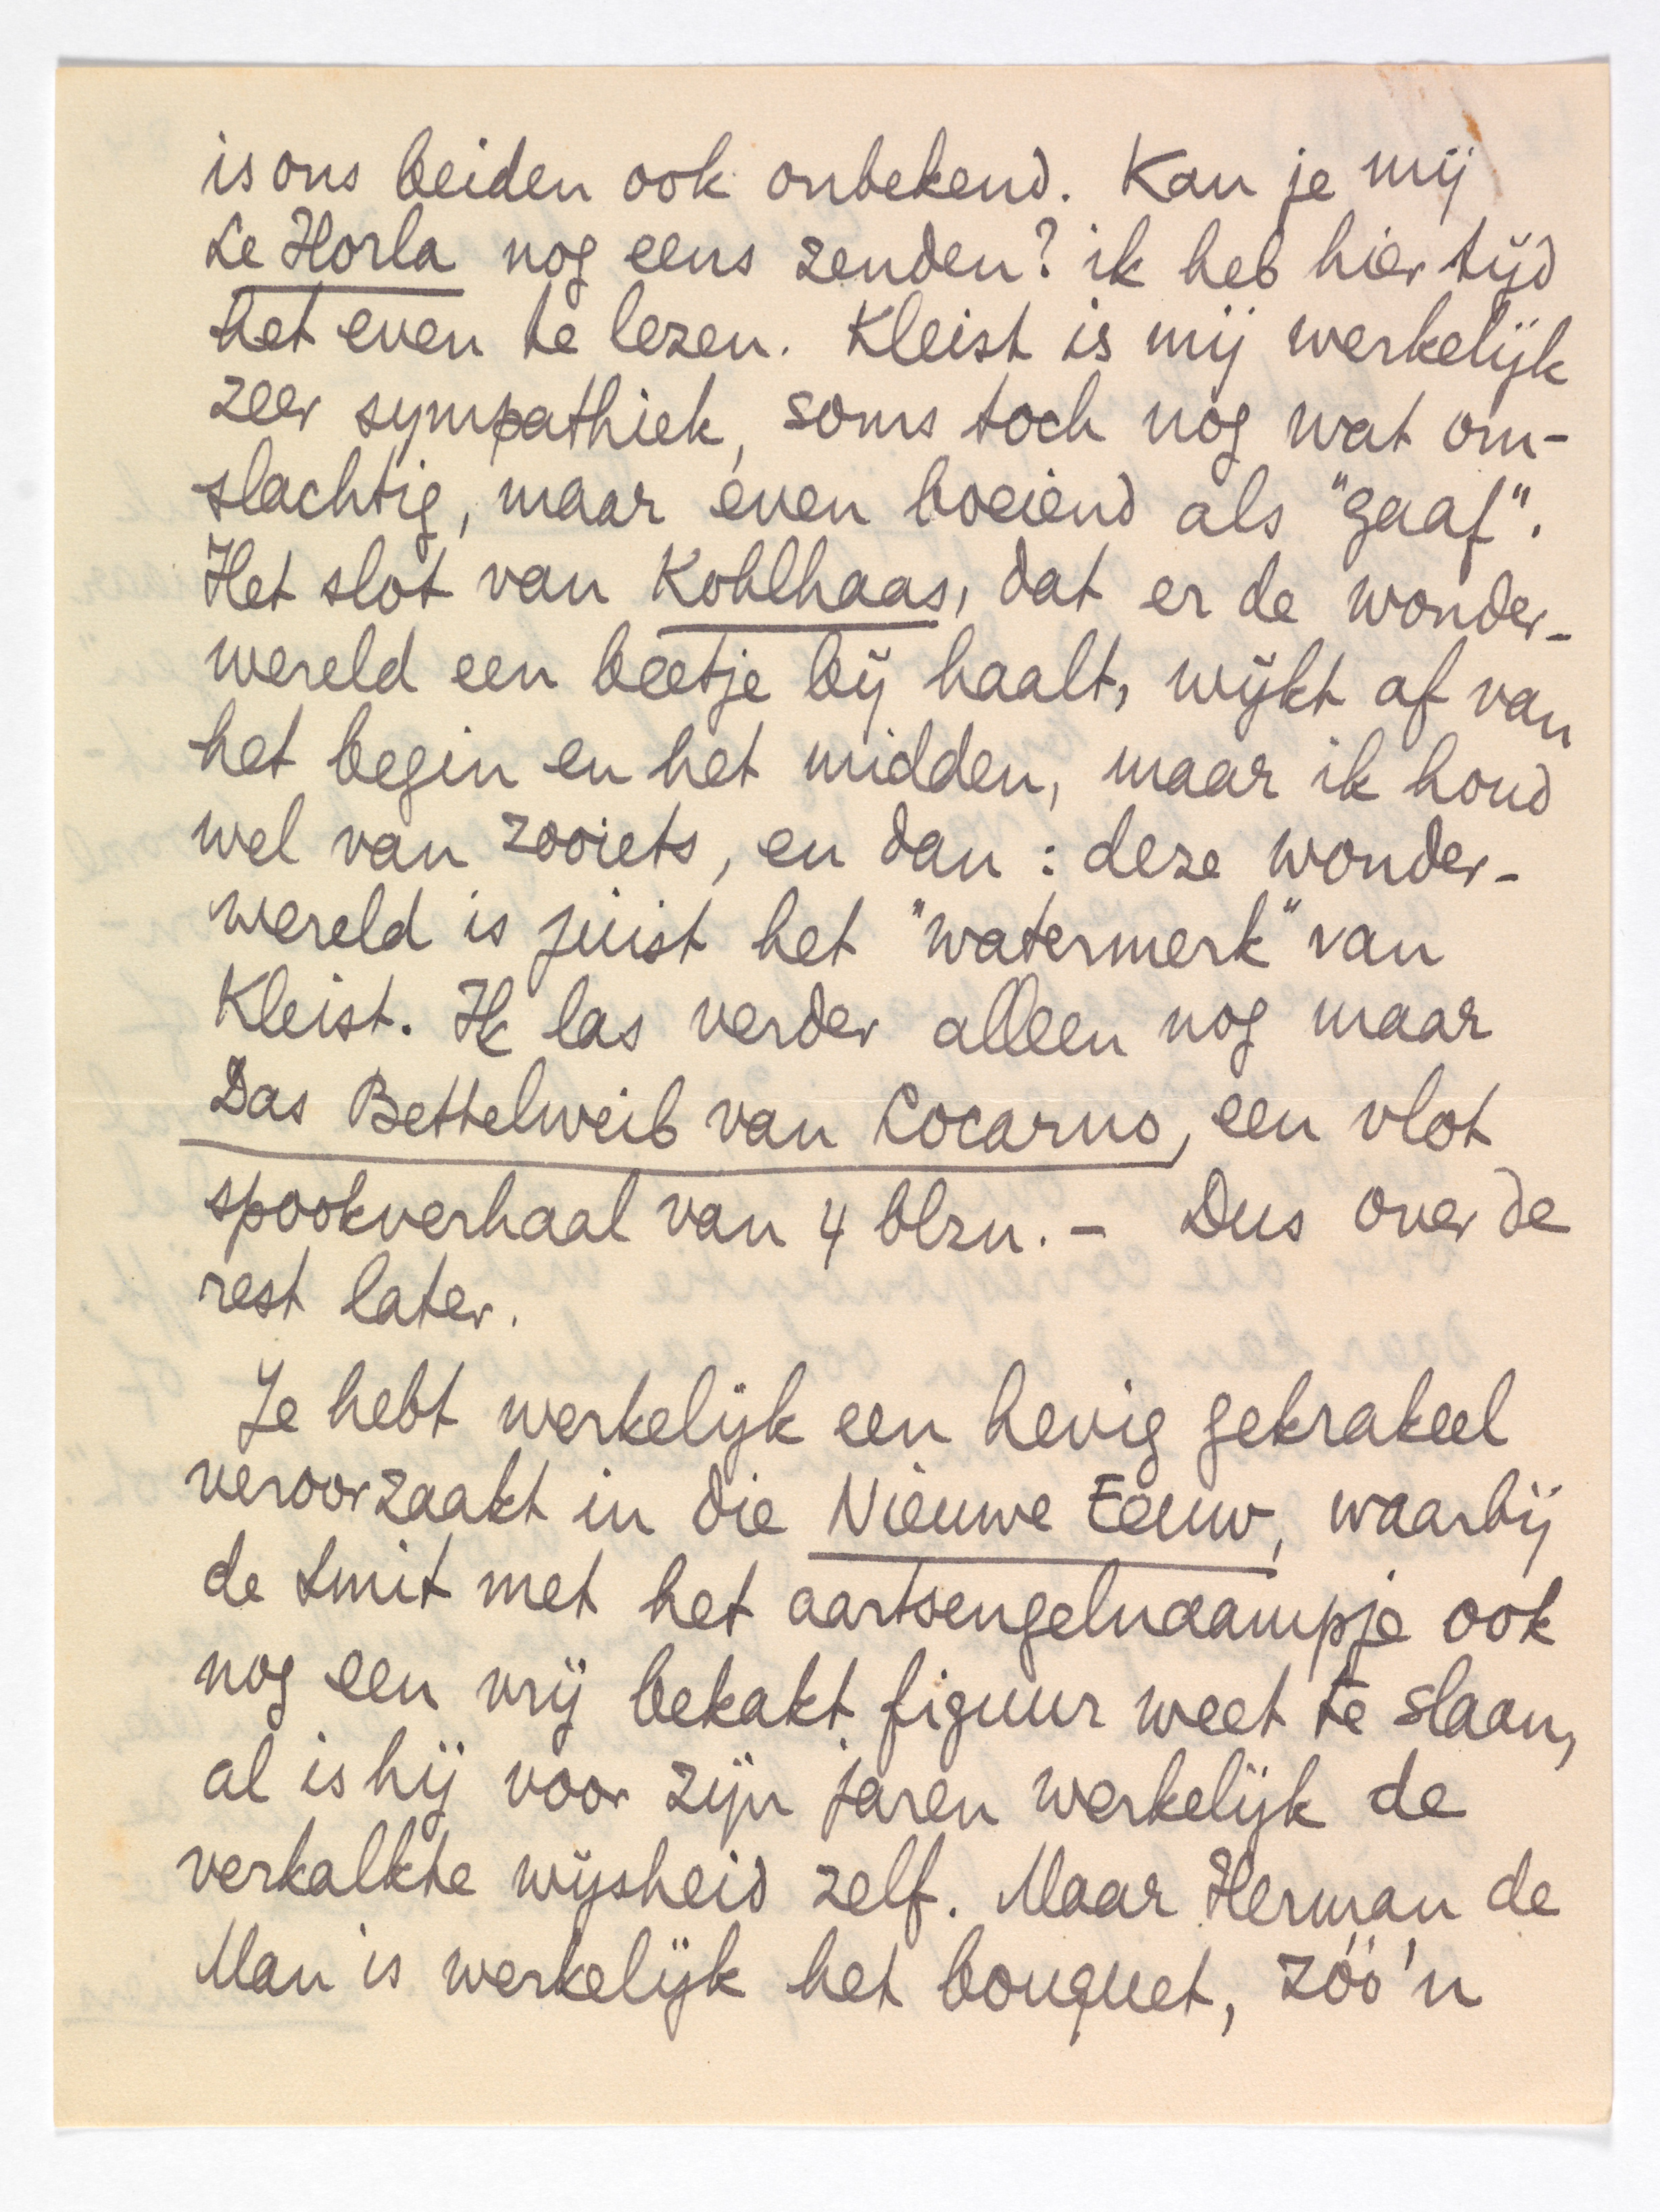 is ons beiden ook onbekend. Kan je mij
Le Horla nog eens zenden? ik heb hier tijd
het even te lezen. Kleist is mij werkelijk
zeer sympathiek, soms toch nog wat om-
slachtig, maar even boeiend als "gaaf".
Het slot van Kohlhaas, dat er de wonder-
wereld een beetje bij haalt, wijkt af van
het begin en het midden, maar ik houd
wel van zooiets, en dan: deze wonder-
wereld is juist het "watermerk" van
Kleist. Ik las verder alleen nog maar
Das Bettelweib van Locarno, een vlot
spookverhaal van 4 blzn. - Dus over de
rest later.
Je hebt werkelijk een hevig gekrakeel
veroorzaakt in die Nieuwe Eeuw, waarbij
de Smit met het aartsengelnaampje ook
nog een vrij bekakt figuur weet te slaan,
al is hij voor zijn jaren werkelijk de
verkalkte wijsheid zelf. Maar Herman de
Man is werkelijk het bouquet, zóó'n